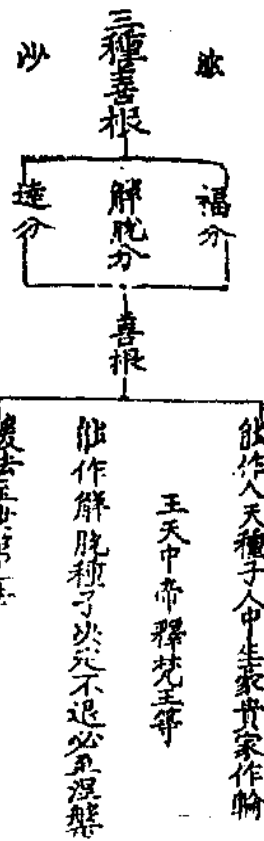 婆
沙
三種善根
福分
解脱分
達分
善根
能作人天種子人中生豪貴家作輪
王天中帝釋梵王等
能作解脱種子決定不退必至涅槃